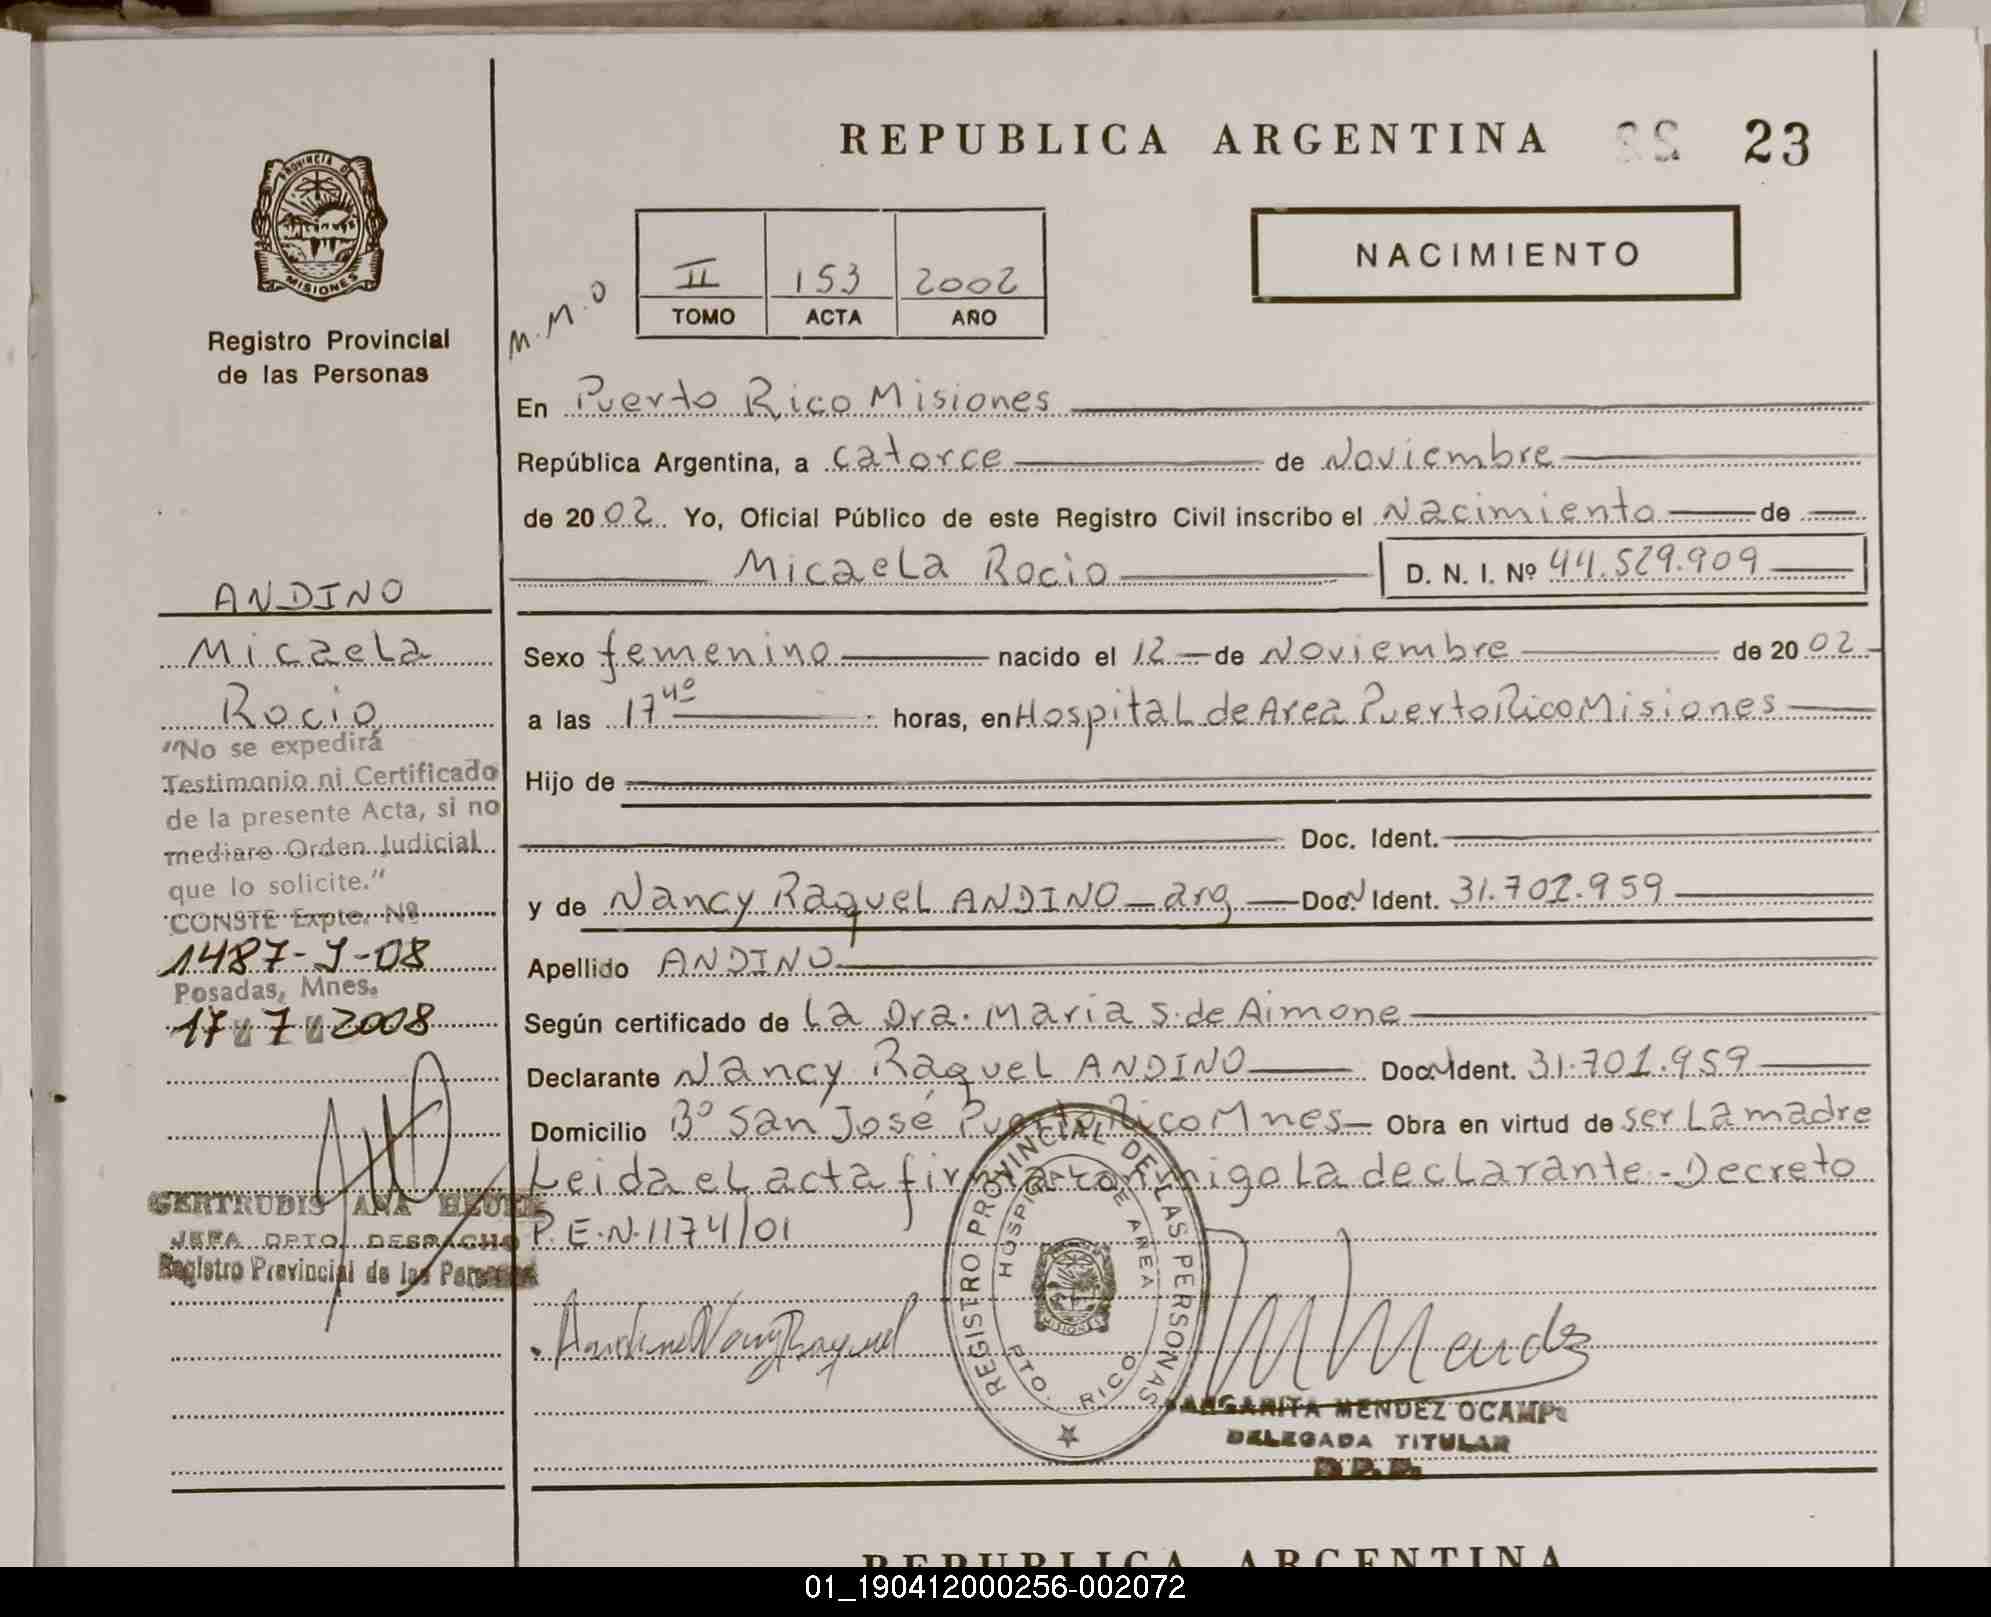 REPUBLICA ARGENTINA 23
PROVINCIA DE
MISIONES
Registro Provincial
de las Personas
NACIMIENTO
M.M.O
II 153 2002
TOMO ACTA AÑO
En Puerto Rico Misiones
República Argentina, a catorce de Noviembre
de 2002 Yo, Oficial Público de este Registro Civil inscribo el Nacimiento de
Micaela Rocio D. N. I. Nº 44.529.909
ANDINO
Micaela
Rocio
"No se expedirá
Testimonio ni Certificado
de la presente Acta, si no
mediare Orden Judicial
que lo solicite."
CONSTE Expte. Nº
1487-J-08
Posadas, Mnes.
17 7 2008
GERTRUDIS ANA
JEFA DPTO. DESPACHO
Registro Provincial de las Personas
Sexo femenino nacido el 12 de Noviembre de 2002
a las 17 40 horas, en Hospital de Area Puerto Rico Misiones
Hijo de
Doc. Ident.
y de Nancy Raquel ANDINO - arg Doc. Ident. 31.701.959
Apellido ANDINO
Según certificado de La Dra. Maria S. de Aimone
Declarante Nancy Raquel ANDINO Doc. Ident. 31.701.959
Domicilio Bº San José Puerto Rico Mnes Obra en virtud de ser La madre
Leida el acta firma conmigo La declarante - Decreto
P.E.N. 1174/01
Andino Nancy Raquel
REGISTRO PROVINCIAL DE LAS PERSONAS
HOSPITAL DE AREA
MISIONES
PTO. RICO
M Mendez
MARGARITA MENDEZ OCAMPO
DELEGADA TITULAR
REPUBLICA ARGENTINA
01_190412000256-002072